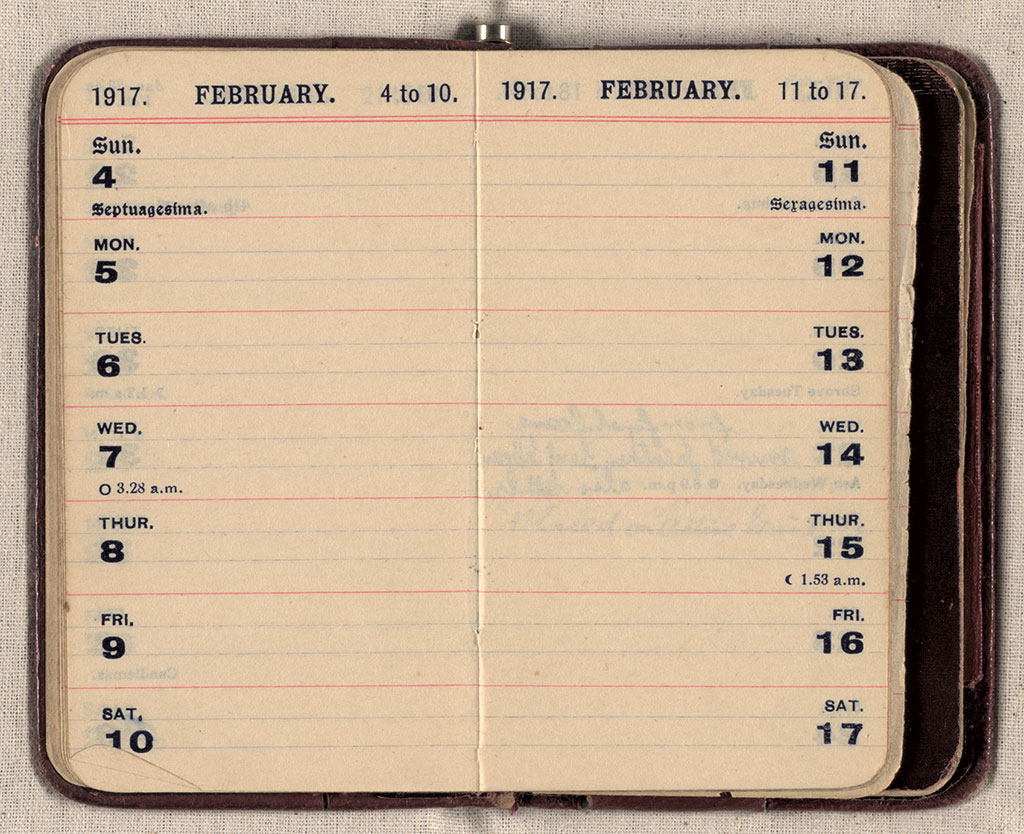 1917. FEBRUARY. 4 to 10.
Sun.
4
Septuagesima.
MON.
5
TUES.
6
WED.
7
O 3.28 a.m.
THUR.
8
FRI.
9
SAT.
10
1917. FEBRUARY. 11 to 17.
Sun.
11
Sexagesima.
MON.
12
TUES.
13
Shrove Tuesday.
WED.
14
Ash Wednesday. 6.9 p.m.
THUR.
15
☾ 1.53 a.m.
FRI.
16
Candlemas.
SAT.
17